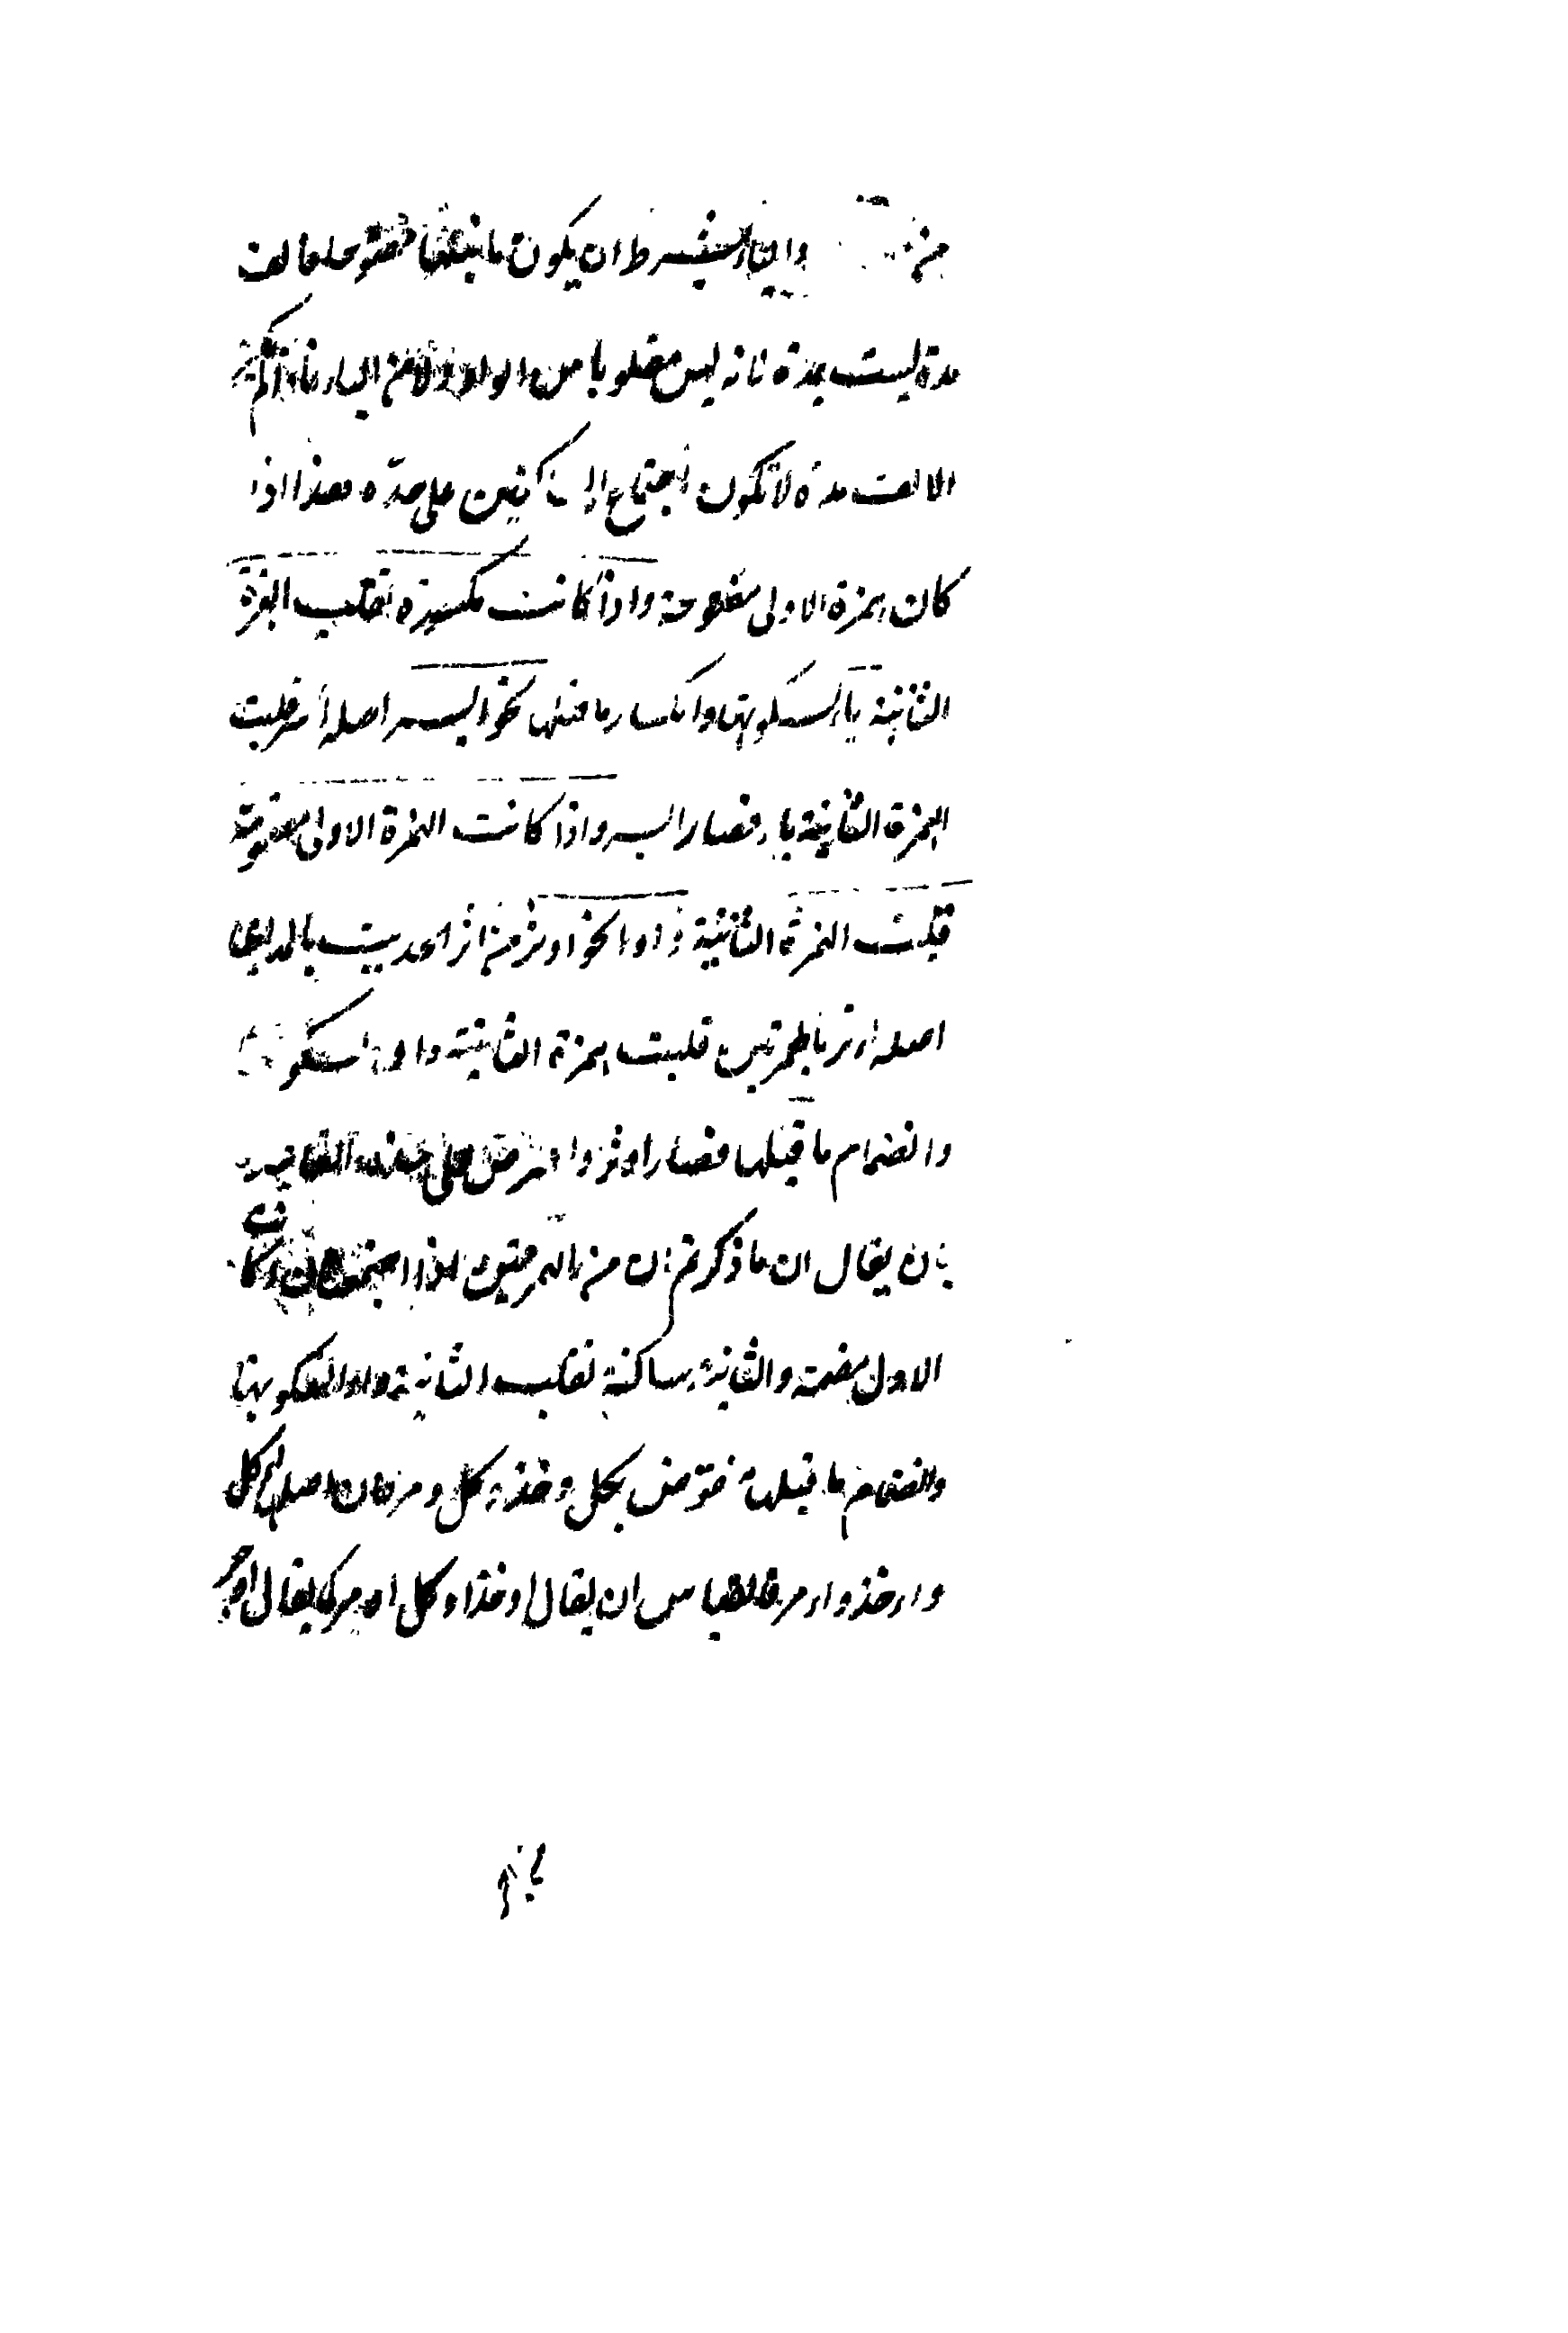 من والياء بشرط ان يكون ما قبلها مفتوحا فالف
مدة ليست بمدة فانه ليس مقلوبا من الواو ولا من الياء فاذا لم يكن
الالف مدة لا تكون اجتماع الساكنين على حده هذا اذا
كان همزة الاولى مفتوحة واذا كانت مكسورة تقلب الهمزة
الثانية ياء لسكونها وانكسار ما قبلها نحو ايسر اصله أسر قلبت
الهمزة الثانية ياء فصار ايسر واذا كانت الهمزة الاولى مضمومة
قلبت الهمزة الثانية واوا نحو اوثر من اثر الحديث
اصله اءثر بالهمزتين قلبت همزة الثانية واوا لسكونها
وانضمام ما قبلها فصار اوثر واعترض على هذه القاعدة
بان يقال ان ما ذكرتم ان من الهمزتين اذا اجتمعتا وكانت
الاول مضمة والثانية ساكنة تقلب الثانية واوا لسكونها
وانضمام ما قبلها منقوض بكل وخذ كل ومر فان اصلهم اكل
واءخذ واءمر فالقياس ان يقال اوخذ اوكل اومر كما يقال اوجر